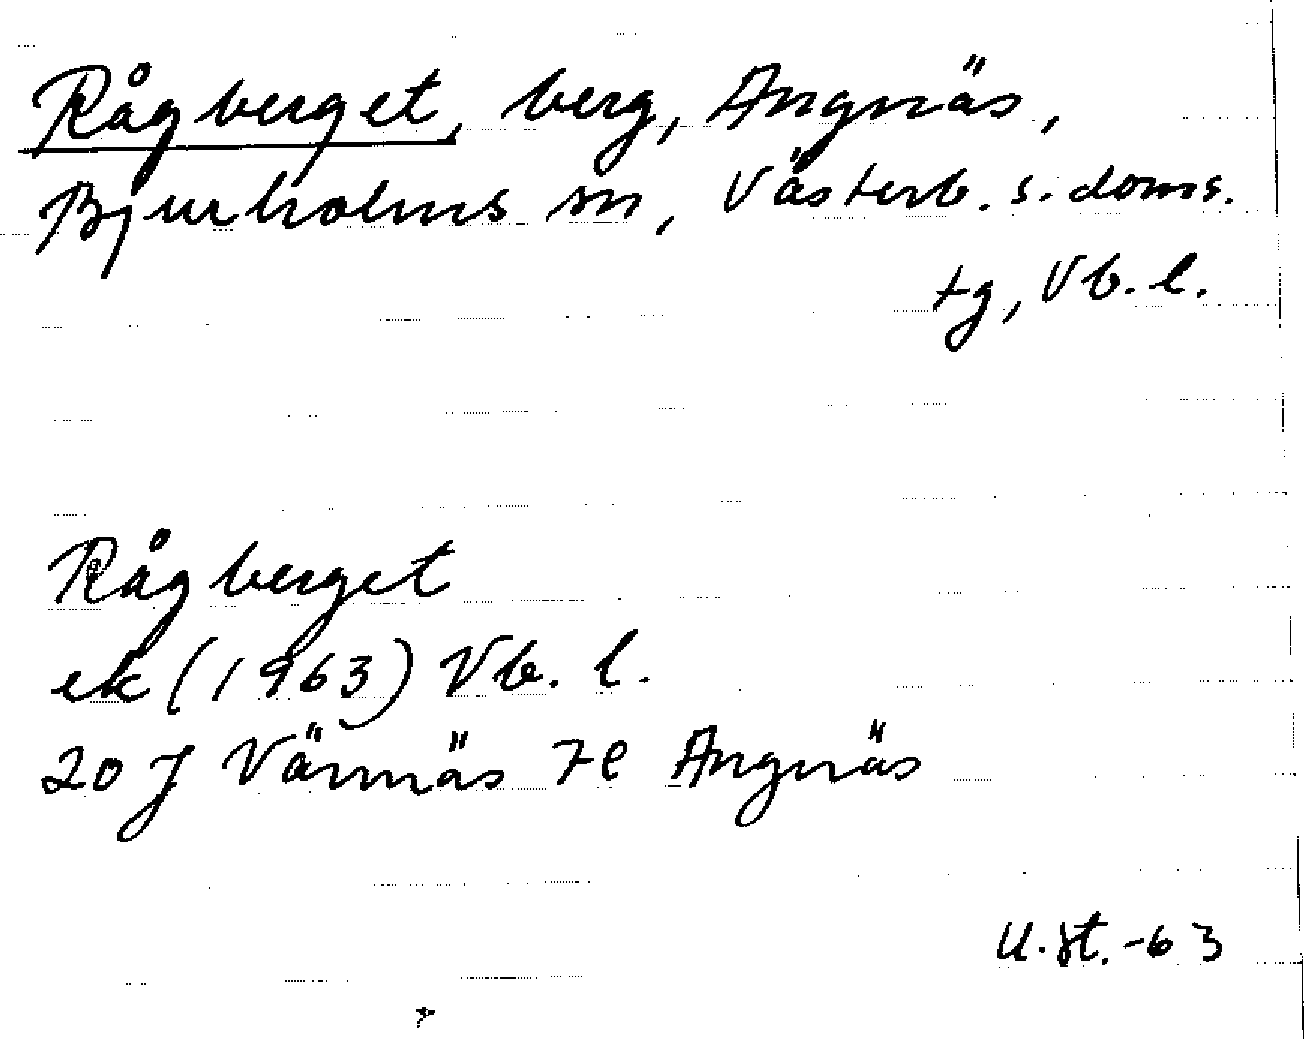 Rågberget, berg, Angnäs,
Bjurholms sn, Västerb. s. doms.
tg, Vb. l.
Rågberget
ek (1963) Vb. l.
20 J Värnäs 7e Angnäs
U. St. -63